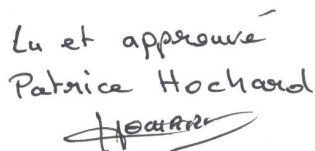 Lu et approuvé
Patrice Hochard
HOCHARD